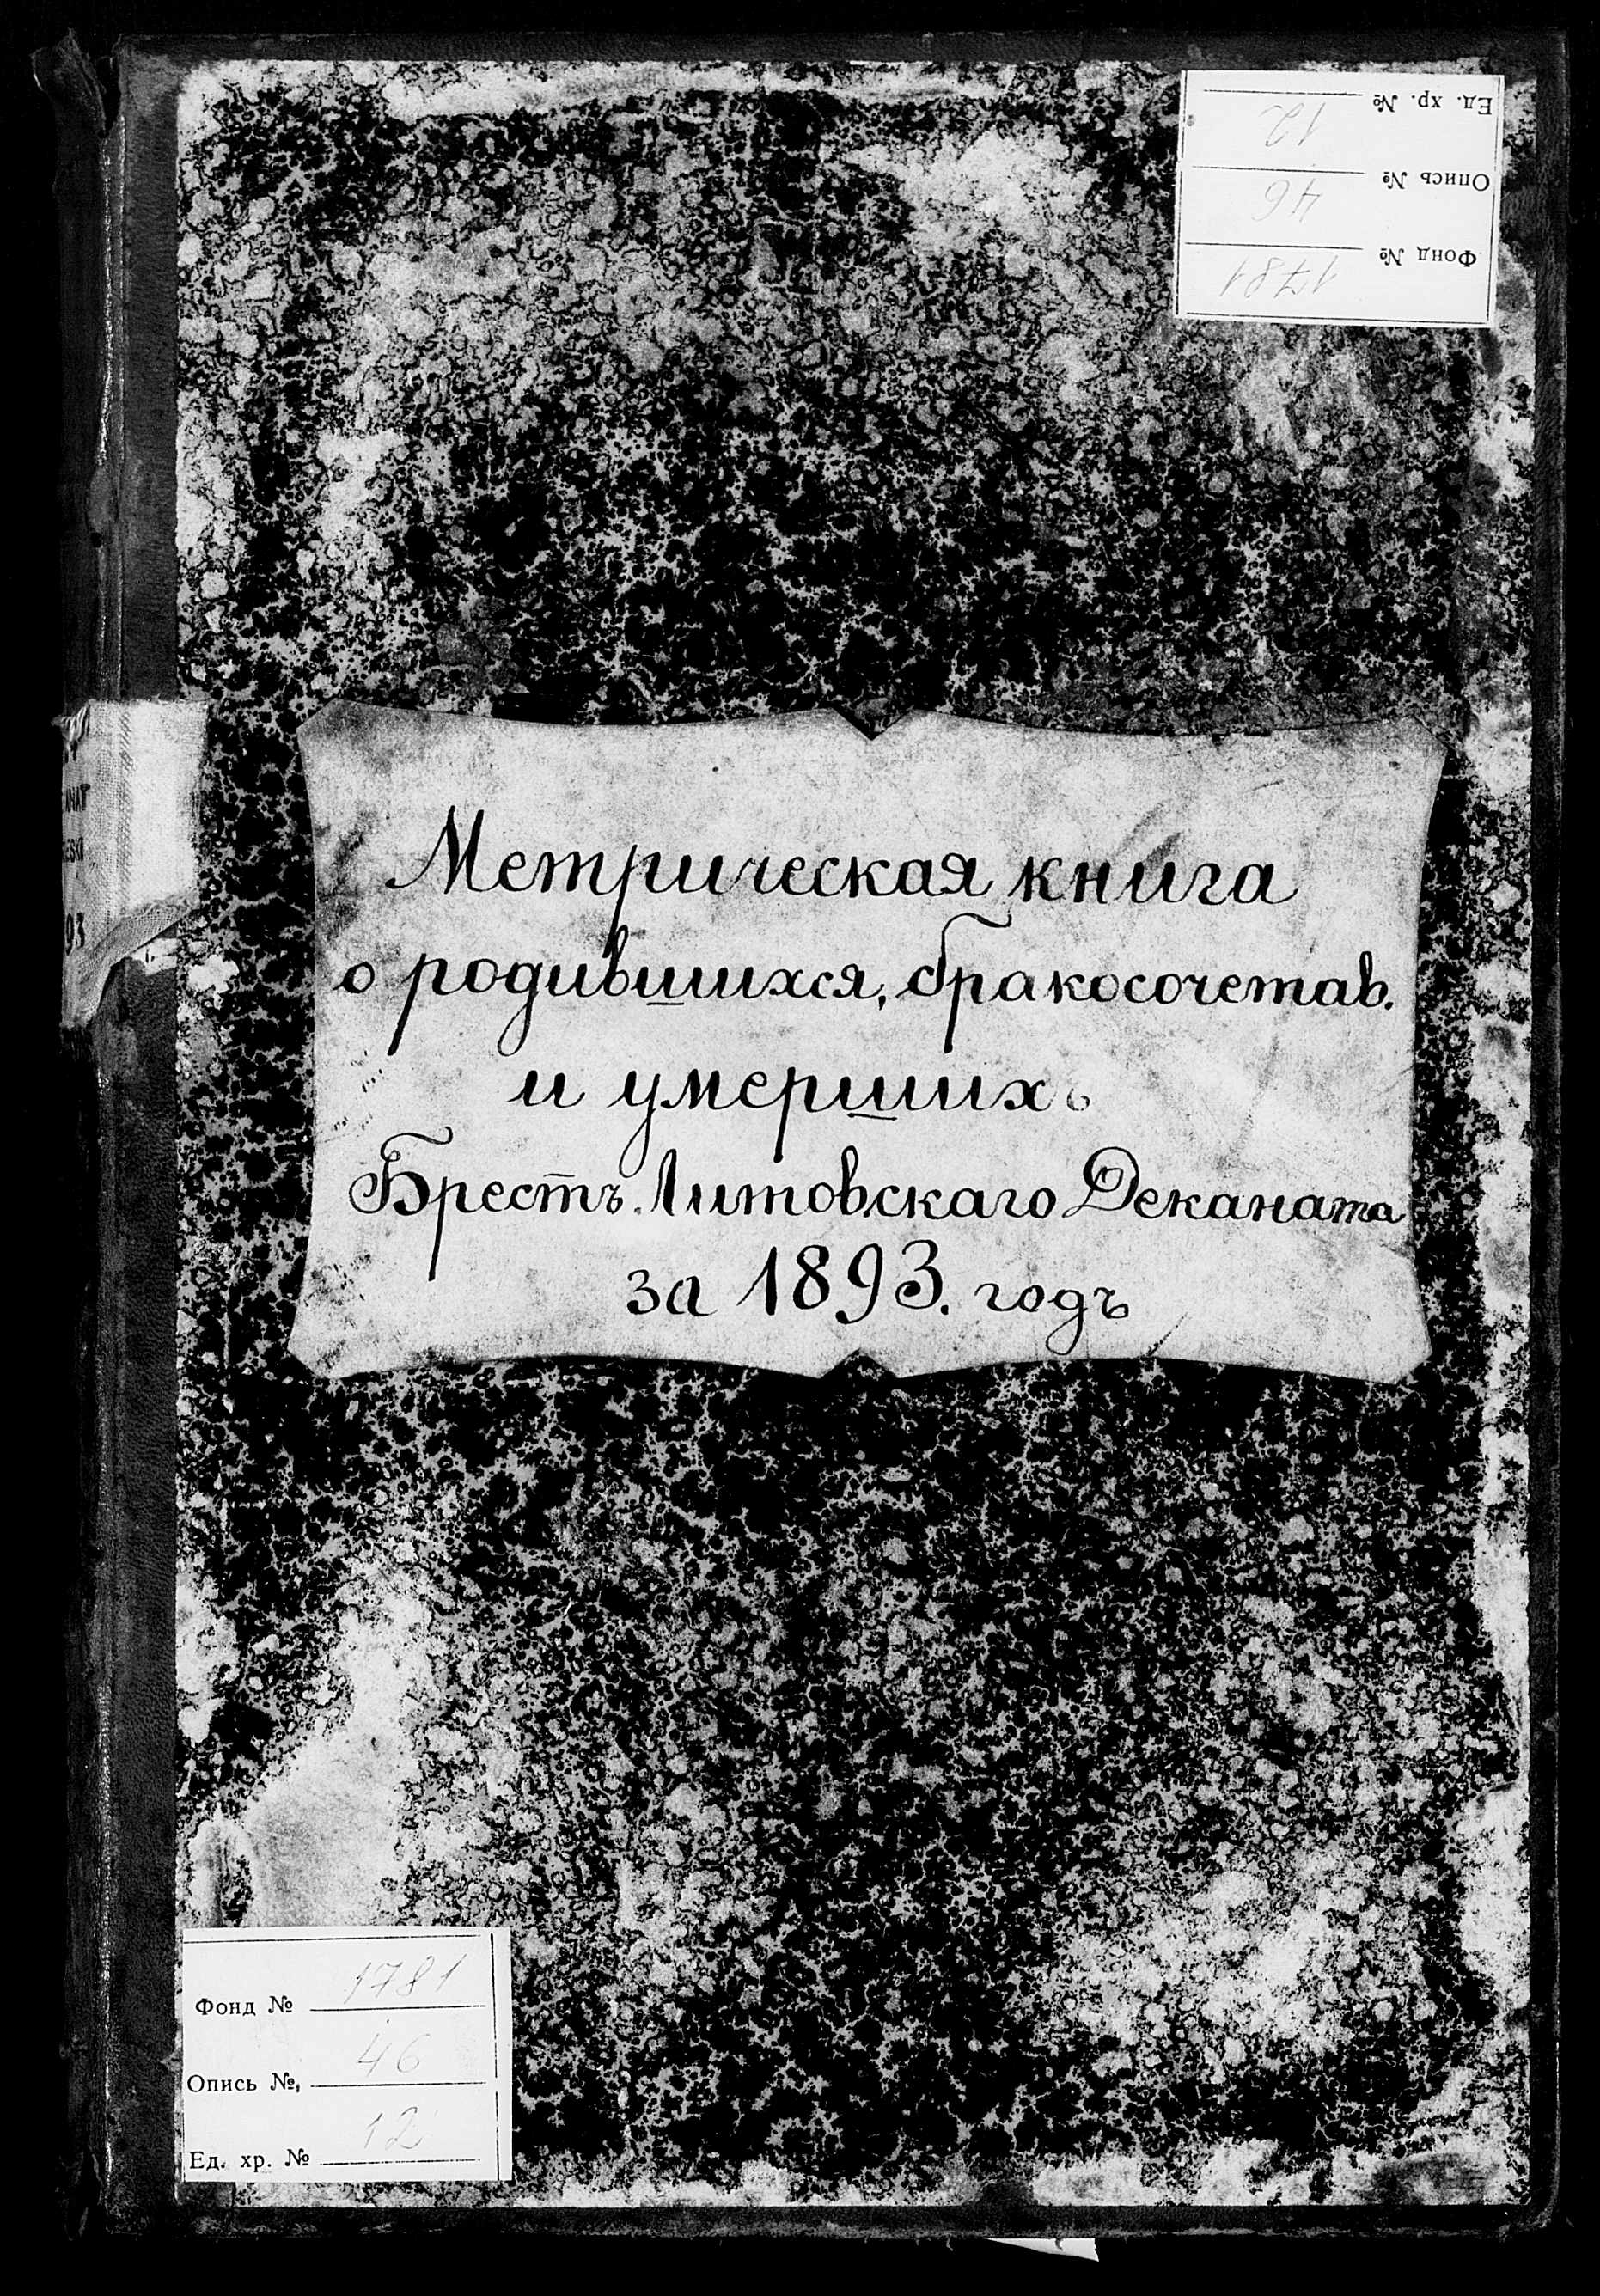 Ед. хр. № 12
Опись № 46
Фонд № 1781
93
Метрическая книга
о родившихся, бракосочетав.
и умершихъ
Брестъ. Литовскаго Деканата
за 1893. годъ
Фонд № 1781
Опись №, 46
Ед. хр. № 12